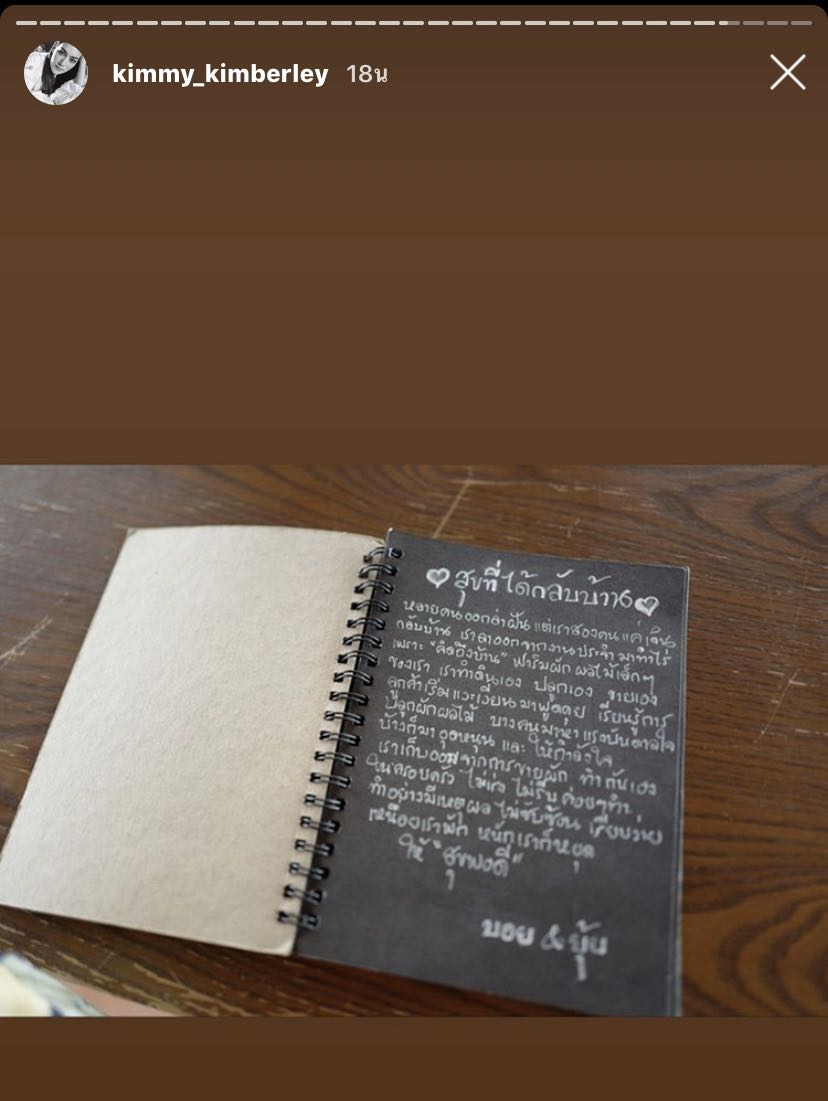 kimmy_kimberley 18น
สุขที่ได้กลับบ้าน
หลายคนออกล่าฝัน แต่เราสองคน แค่เดิน
กลับบ้าน เราลาออกจากงานประจำ มาทำไร่
เพราะ "คิดถึงบ้าน" ฟาร์มผัก ผลไม้เล็กๆ
ของเรา เราทำกินเอง ปลูกเอง ขายเอง
ลูกค้าเริ่มแวะเวียนมาพูดคุย เรียนรู้การ
ปลูกผักผลไม้ บางคนมาหาแรงบันดาลใจ
บ้างก็มาอุดหนุน และ ให้กำลังใจ
เราเก็บออมจากการขายผัก ทำกันเอง
ในครอบครัว ไม่เร่ง ไม่รีบ ค่อยๆทำ
ทำอย่างมีเหตุผล ไม่ซับซ้อน เรียบง่าย
เหนื่อยเราพัก หนักเราก็หยุด
ให้ "สุขพอดี"
บอย & ยุ้ย